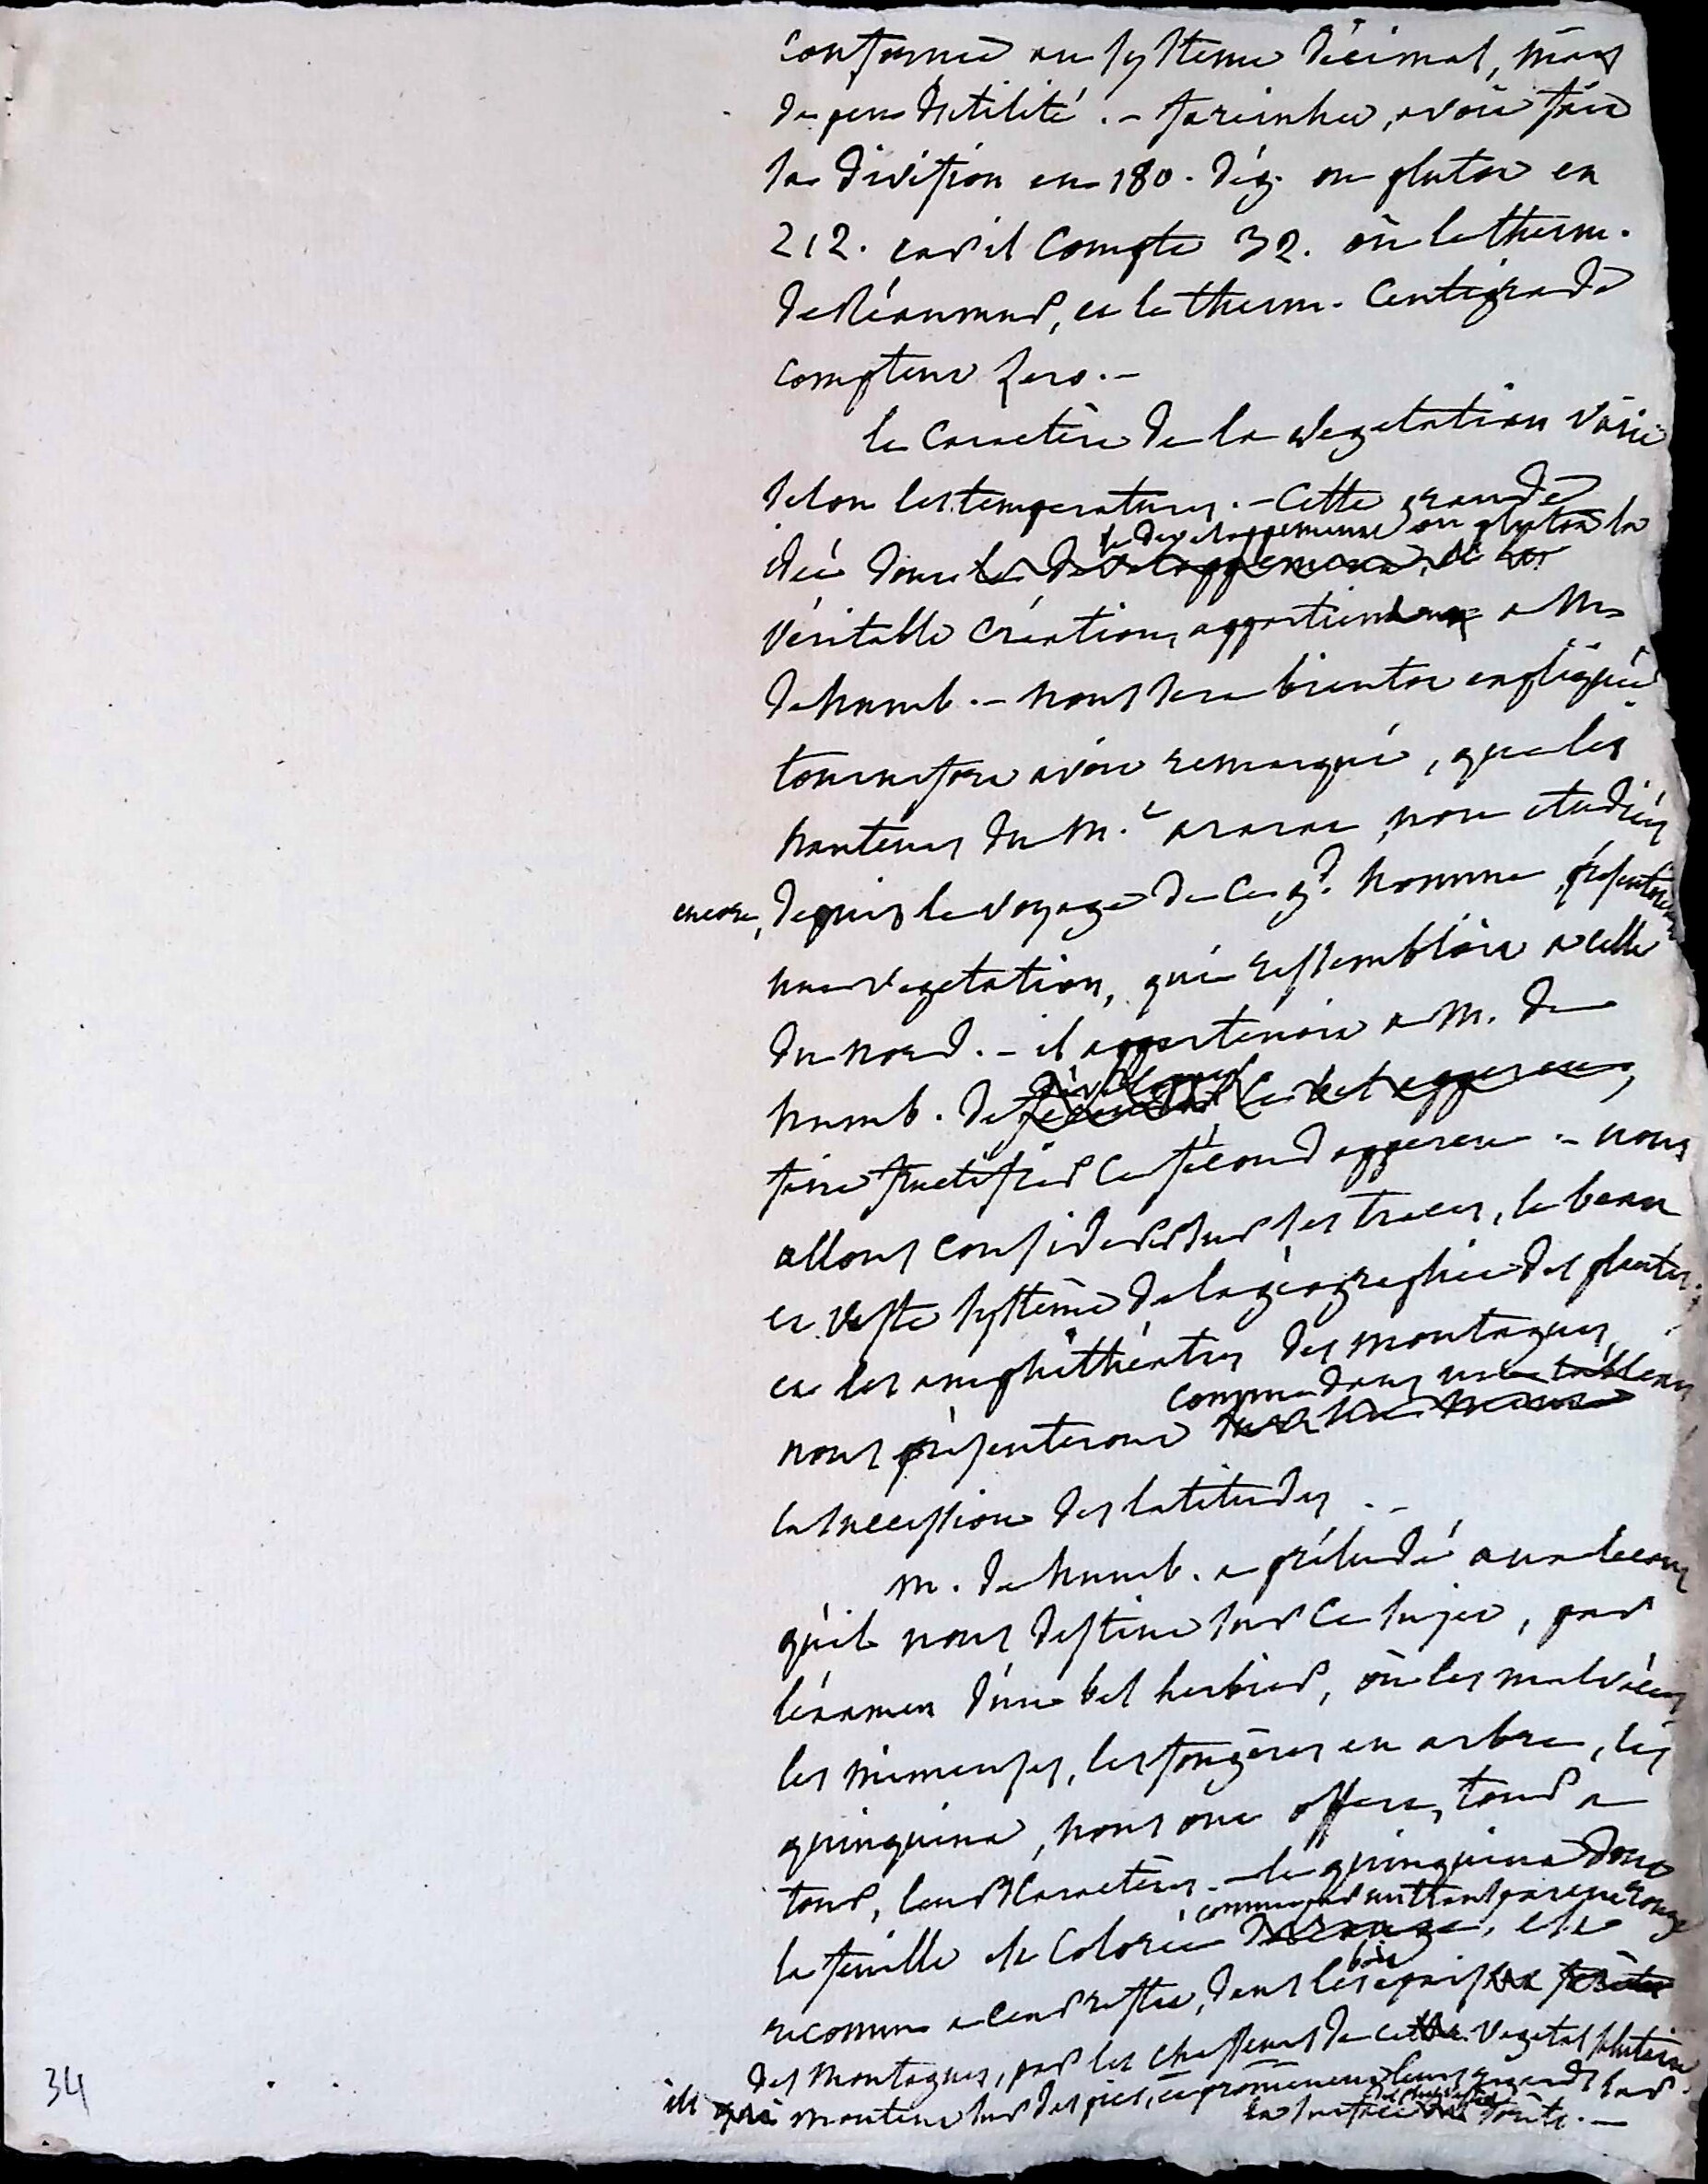 conforme au systeme décimal, mais
de peu d'utilité. - fareinheit, avoit fait
la division en 180. dég. ou plutot en
212. car il compte 32. où le therm.
de Réaumur, et le therm. centigrade
comptent zero. -
le caractère de la vegetation varie
selon les temperatures. - cette grande
le developpement ou plutot la
idée dont le developpement, et la
véritable création, appartiennent a M.
de humb. - nous sera bientot expliquée.
tournefort avoit remarqué, que les
hauteurs du M.t ararat, non etudiées
encore, depuis le voyage de ce gd. homme, présentoient
une vegetation, qui ressembloit a celle
du nord. - il appartenoit a M. de
humb. de développer ce bel apperçu,
faire fructifier ce fécond apperçu. - nous
allons considerer sur ses traces, le beau
et vaste système de la géographie des plantes
et les amphithéatres des montagnes,
comme dans un tableau
nous présenteront
la succession des latitudes. -
M. de humb. a préludé aux lecons
qu'il nous destine sur ce sujet, par
l'éxamen d'un bel herbier, où les malvacées
les mimeuses, les fougères en arbre, les
quinquina, nous ont offert, tour a
tour, leurs caractères. - le quinquina dont
comme par un transparent rouge
la feuille est colorée, est
reconnu a ce reflet, dans les bois épais
des montagnes, par les chasseurs de ce vegetal salutaire.
ils qui montent sur des pics, et promenent leurs regards sur
la surface des forêts. -
34